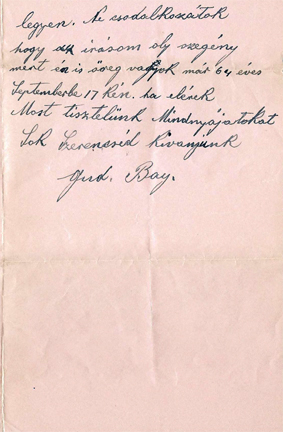 legyen. Ne csodalkozatok
hogy az irásom oly szegény
mert én is öreg vagyok már 64 éves
Septemberbe 17 kén. ha elérek
Most tisztelünk Mindnyájatokat
Sok Szerencséd kivanjunk
Bay.